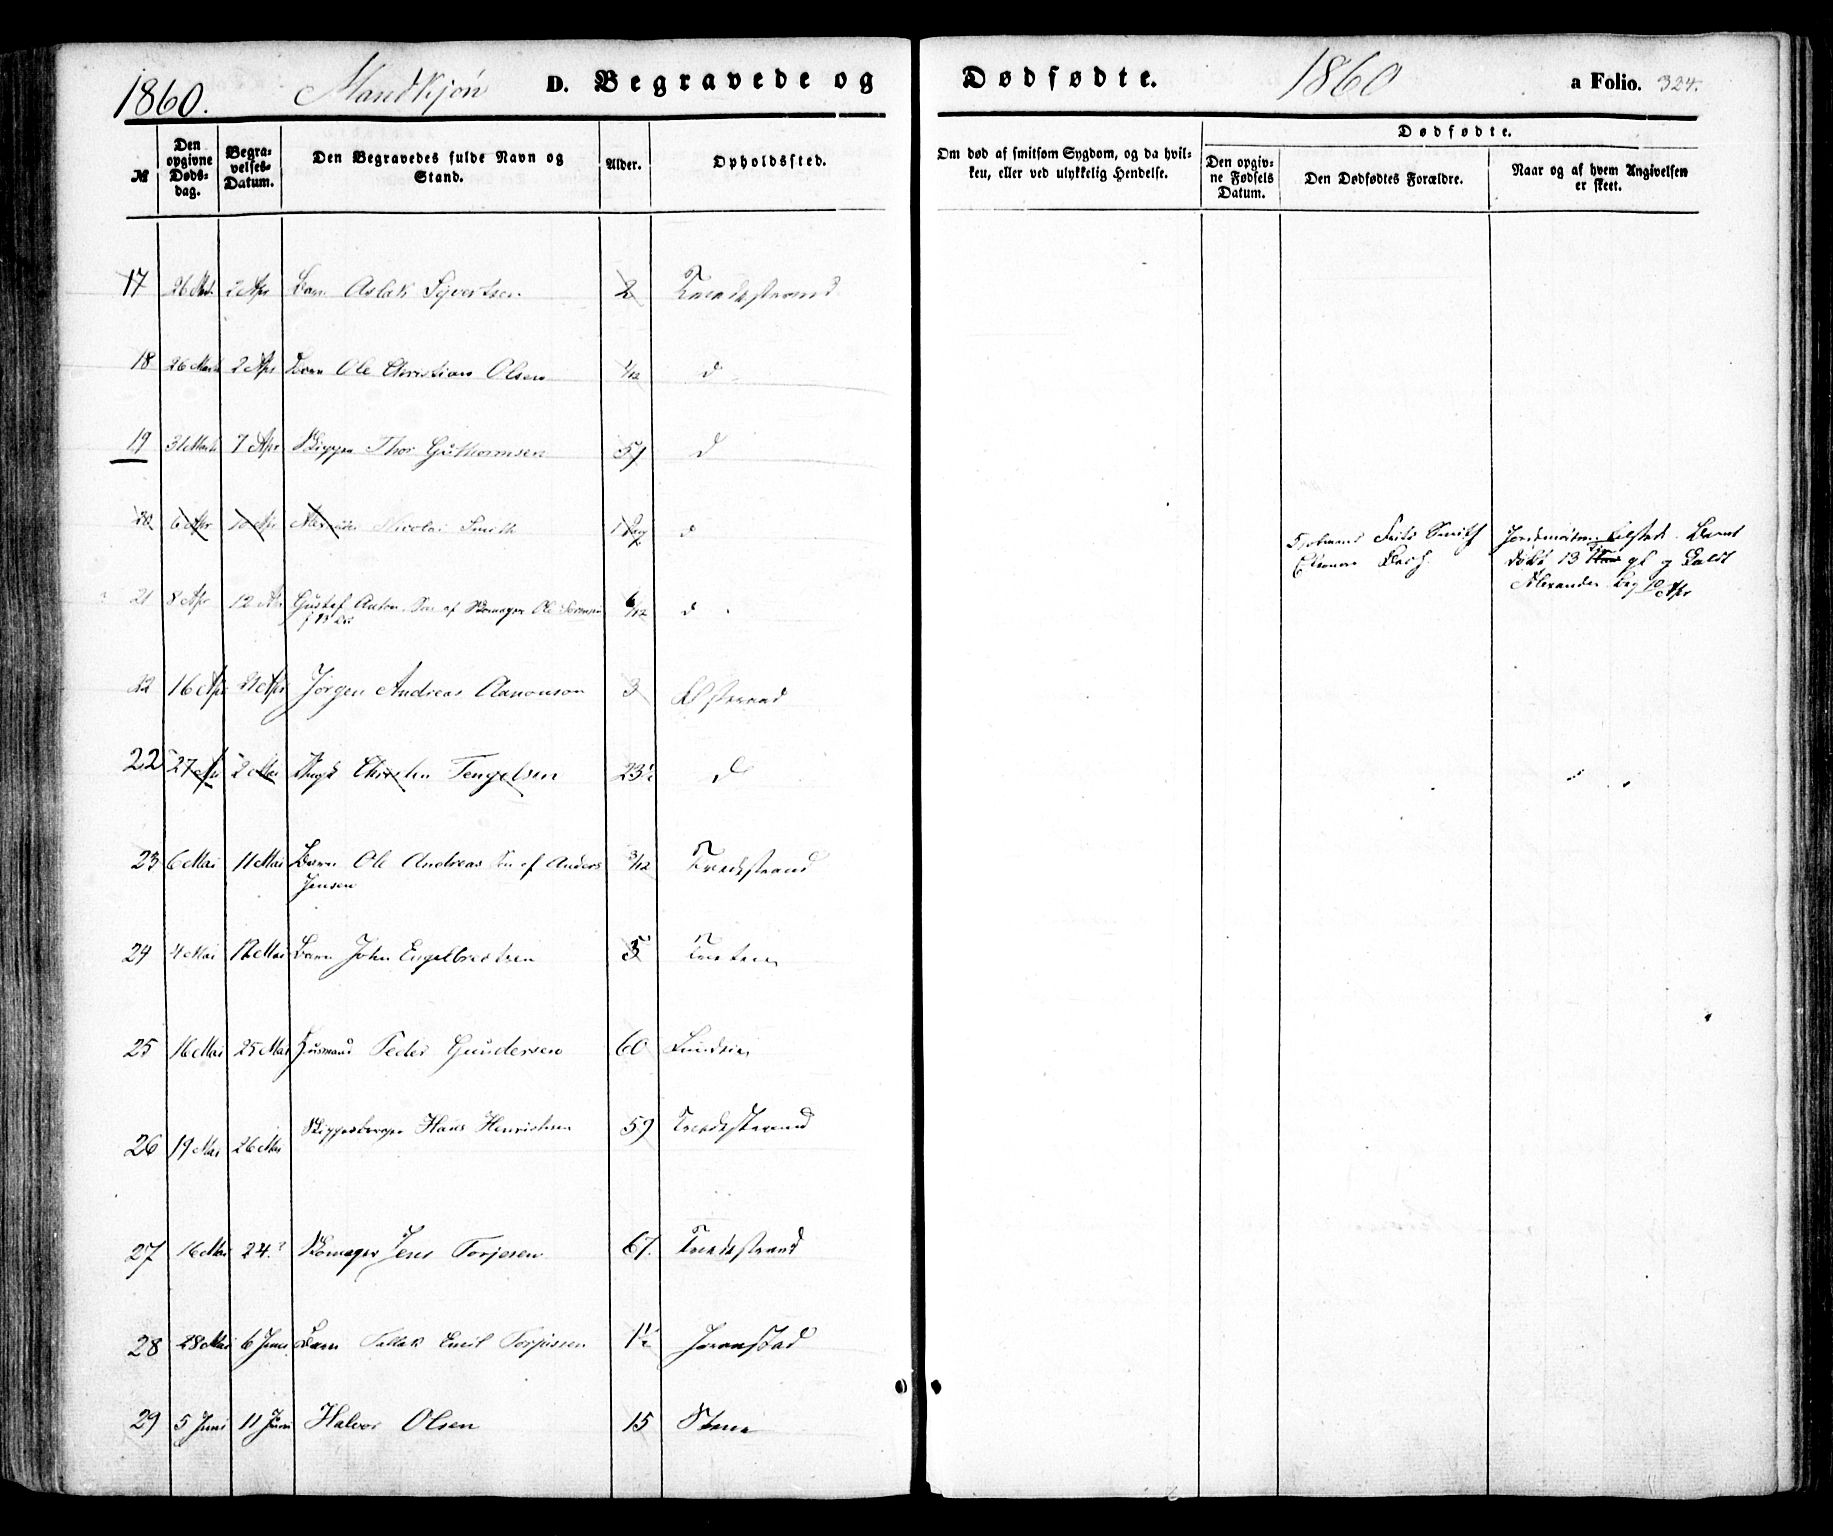 1860. Mandkjøn D. Begravede og Dødfødte. 1860 a Folio. 324.
№
Den opgivne Døds-dag.
Begra-velses-Datum.
Den Begravedes fulde Navn og Stand.
Alder.
Opholdssted.
Om død af smitsom Sygdom, og da hvil-ken, eller ved ulykkelig Hendelse.
Dødfødte.
Den opgiv-ne Fødsels Datum.
Den Dødfødtes Forældre.
Naar og af hvem Angivelsen er skeet.
17 26 2 Apr Barn Aslak Syvertsen 2 Tvedestrand
18 26 Marts 2 Apr Barn Ole Christian Olsen 1/12 d
19 31 Marts 7 Apr Skipper Thor Guthormsen 57 d
20 6 Apr 10 Apr Nicolai Smith 1 Dag d
Fritz Smith
Eleonore
Jordemoder
Døbt 13
Alexander Dag 10 Apr
21 8 Apr 12 Apr Gustaf Anton Søn af Skomager Ole Sørensen 6/12 d
22 16 Apr 21 Apr Jørgen Andreas Aanonson 3
22 27 Apr 2 Mai Christen Tengelsen 23½ d
23 6 Mai 11 Mai Barn Ole Andreas Søn af Anders 3/12 Tvedestrand
Jensen
24 4 Mai 12 Mai Barn John Engelbretsen 5
25 16 Mai 25 Mai Husmand Peder Gundersen 60
26 19 Mai 26 Mai Hans Henrichsen 59 Tvedestrand
27 16 Mai 24. Skomager Jens Torjesen 67. Tvedestrand
28 28 Mai 6 Juni Barn Tallak Emil Torjussen 1½
29 5 Juni 11 Juni Halvor Olsen 15